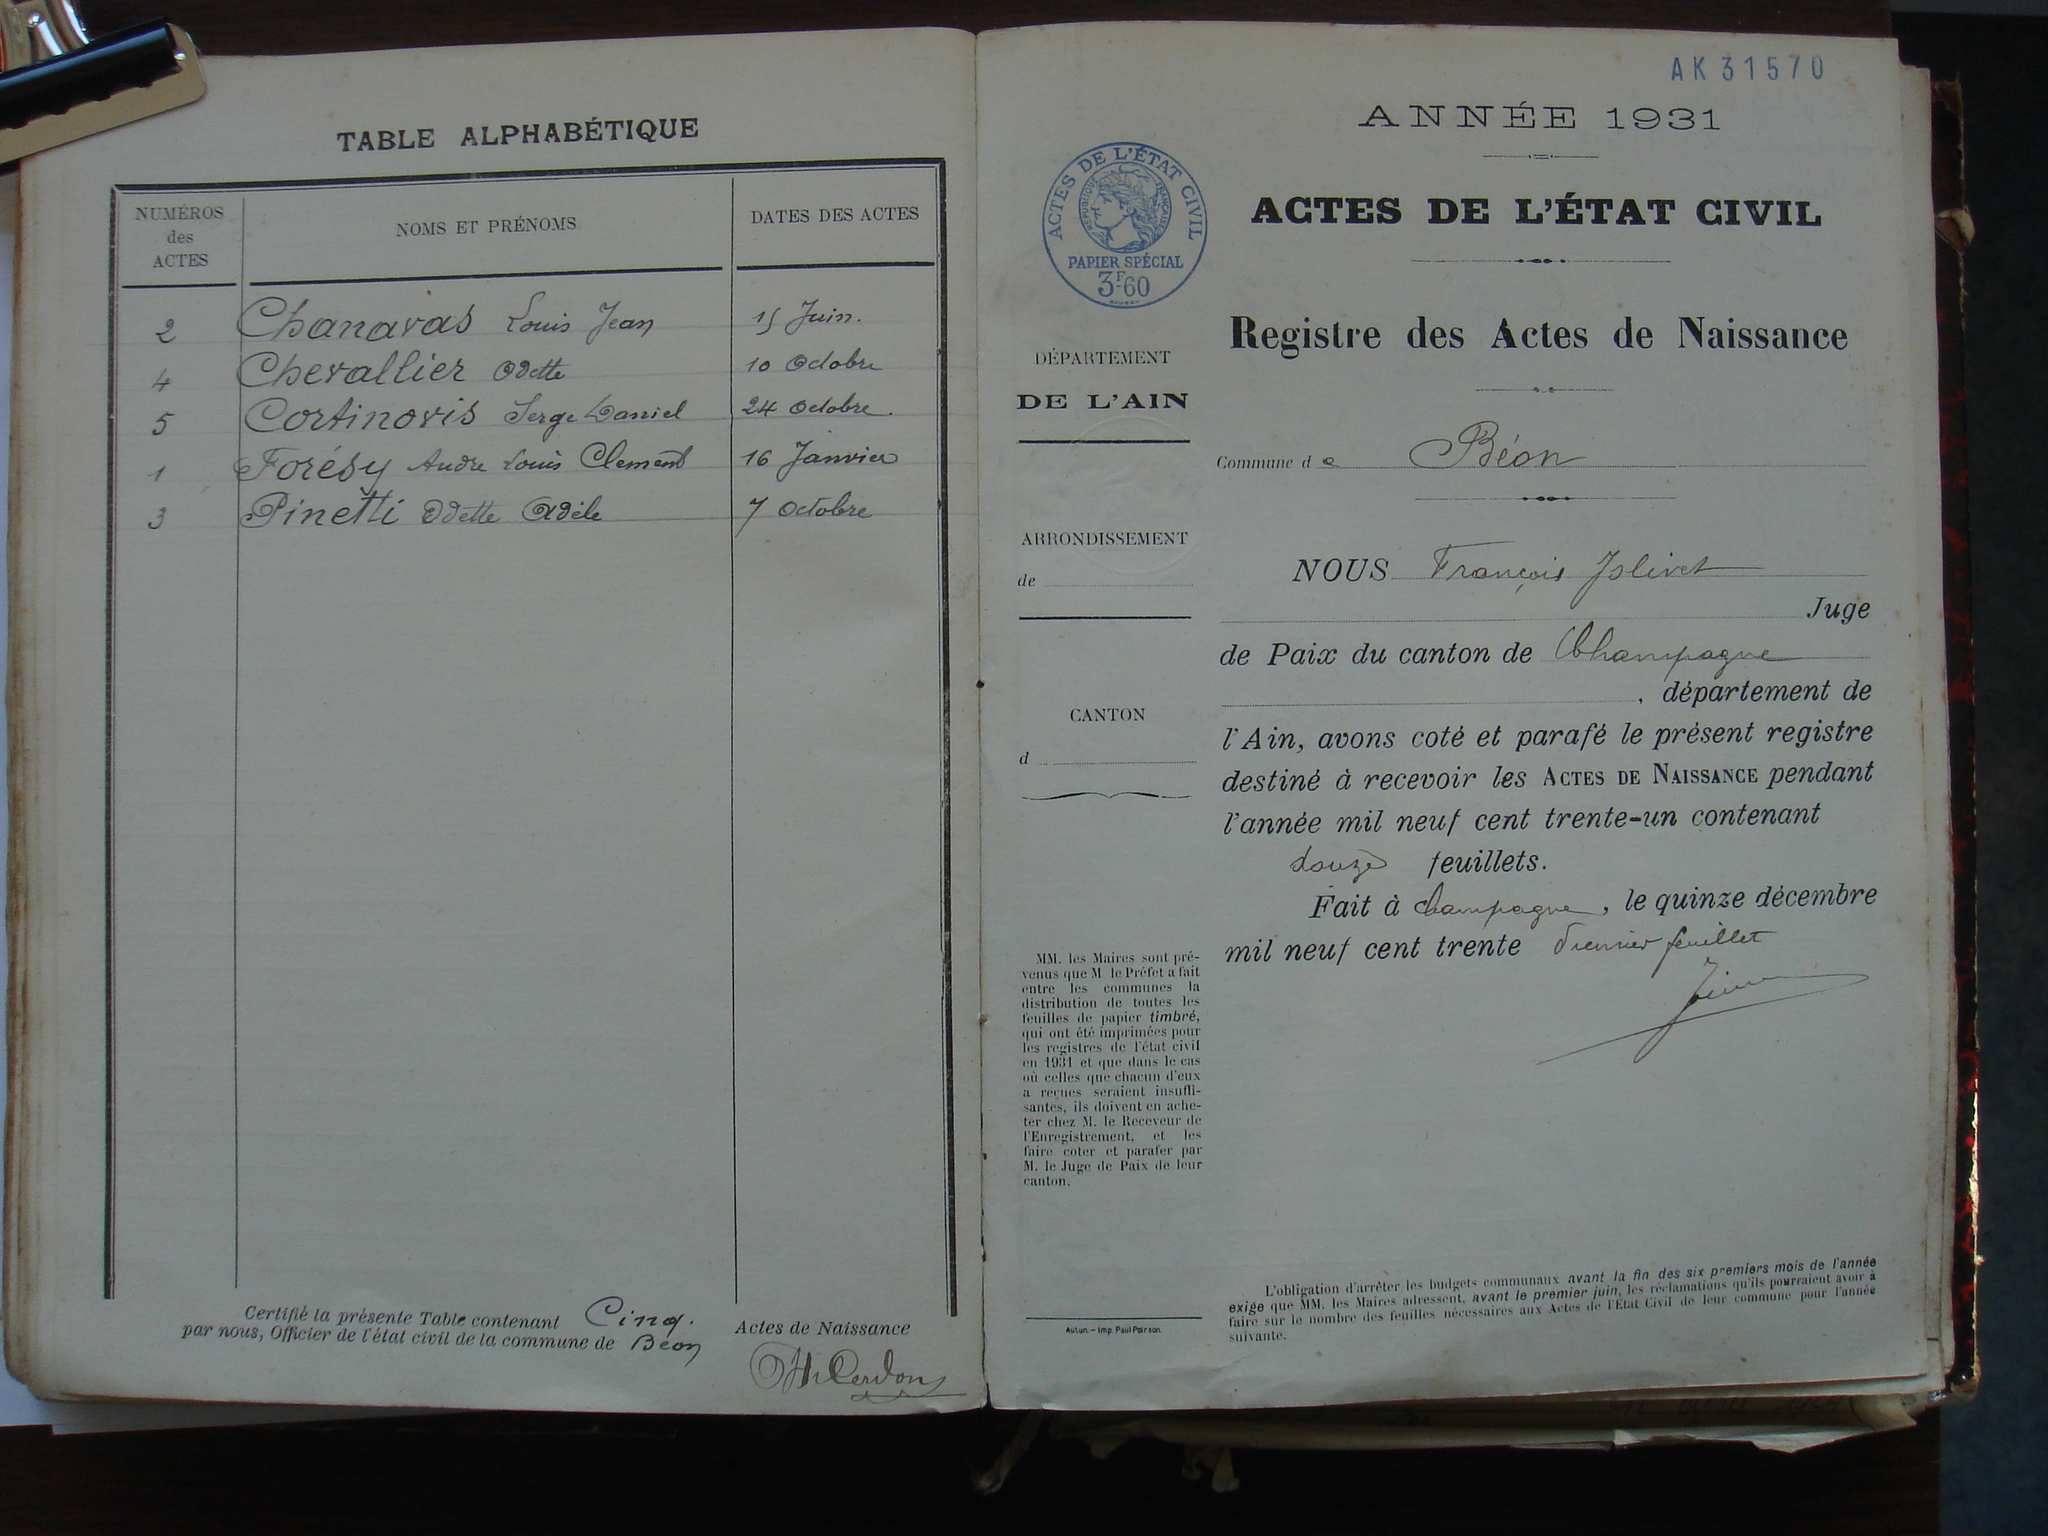 TABLE ALPHABÉTIQUE
NUMÉROS
des
ACTES
NOMS ET PRÉNOMS
DATES DES ACTES
2 Chanavas Louis Jean 15 Juin.
4 Chevallier Odette 10 Octobre
5 Cortinovis Serge Daniel 24 Octobre.
1 Forésy Andre Louis Clement 16 Janvier
3 Pinetti Odette Adèle 7 Octobre
Certifié la présente Table contenant Cinq. Actes de Naissance
par nous, Officier de l'état civil de la commune de Béon
AK 31570
ANNÉE 1931
ACTES DE L'ÉTAT CIVIL
RÉPUBLIQUE FRANÇAISE
PAPIER SPÉCIAL
3F60
ACTES DE L'ÉTAT CIVIL
Registre des Actes de Naissance
DÉPARTEMENT
DE L'AIN
Commune de Béon
ARRONDISSEMENT
de
CANTON
d
NOUS François Jolivet
Juge
de Paix du canton de Champagne
, département de
l'Ain, avons coté et parafé le présent registre
destiné à recevoir les ACTES DE NAISSANCE pendant
l'année mil neuf cent trente-un contenant
douze feuillets.
Fait à Champagne, le quinze décembre
mil neuf cent trente Premier feuillet
MM. les Maires sont pré-
venus que M. le Préfet a fait
entre les communes la
distribution de toutes les
feuilles de papier timbré,
qui ont été imprimées pour
les registres de l'état civil
en 1931 et que dans le cas
où celles que chacun d'eux
a reçues seraient insuffi-
santes, ils doivent en ache-
ter chez M. le Receveur de
l'Enregistrement, et les
faire coter et parafer par
M. le Juge de Paix de leur
canton.
Autun. – Imp. Paul Poirson.
L'obligation d'arrêter les budgets communaux avant la fin des six premiers mois de l'année
exige que MM. les Maires adressent, avant le premier juin, les réclamations qu'ils pourraient avoir à
faire sur le nombre des feuilles nécessaires aux Actes de l'État Civil de leur commune pour l'année
suivante.